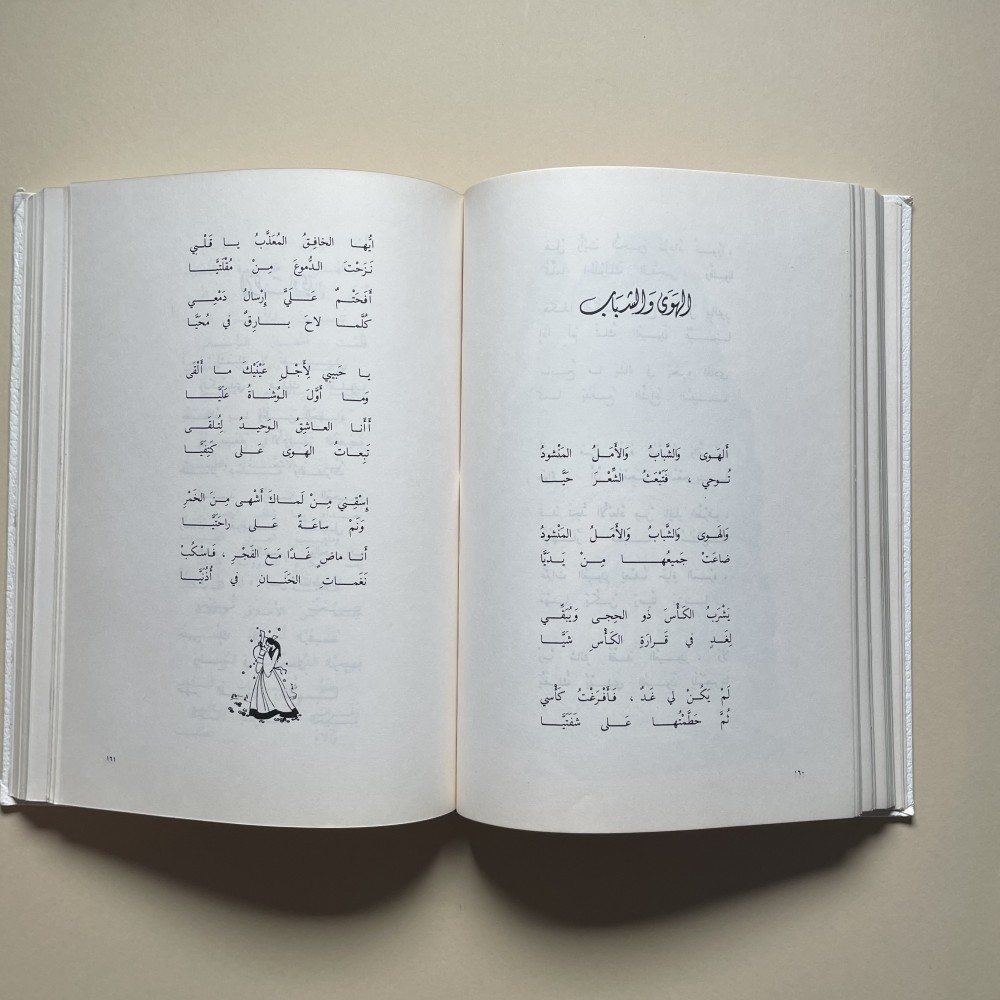 الهَوَى وَالشبَاب
أَلهَوى وَالشَّبابُ وَالأَمَلُ المَنْشودُ
تُوحي ، فَتَبْعَثُ الشِّعْرَ حَيَّا
وَالهَوى وَالشَّبابُ وَالأَمَلُ المَنْشودُ
ضاعَتْ جَميعُها مِنْ يَدَيَّا
يَشْرَبُ الكَأْسَ ذو الحِجى وَيُبَقِّي
لِغَدٍ في قَرارَةِ الكَأْسِ شَيَّا
لَمْ يَكُنْ لي غَدٌ ، فَأَفْرَغْتُ كَأْسي
ثُمَّ حَطَّمْتُها عَلى شَفَتَيَّا
١٦٠
ايُّها الخافِقُ المُعَذَّبُ يا قَلْبي
نَزَحْتَ الدُّموعَ مِنْ مُقْلَتَيَّا
أَفَحَتْمٌ عَلَيَّ إِرْسالُ دَمْعِي
كُلَّما لاحَ بارِقٌ في مُحَيَّا
يا حَبيبي لِأَجْلِ عَيْنَيْكَ ما أَلْقَى
وَما أَوَّلَ الوُشاةُ عَلَيَّا
أَأَنا العاشِقُ الوَحيدُ لِتُلقَى
تَبِعاتُ الهَوى عَلى كَتِفَيَّا
إِسْقِني مِنْ لَماكَ أَشْهى مِنَ الخَمْرِ
وَنَمْ ساعَةً عَلى راحَتَيَّا
أَنا ماضٍ غَدًا مَعَ الفَجْرِ ، فَاسْكُبْ
نَغَماتِ الحَنَانِ في أُذُنَيَّا
١٦١